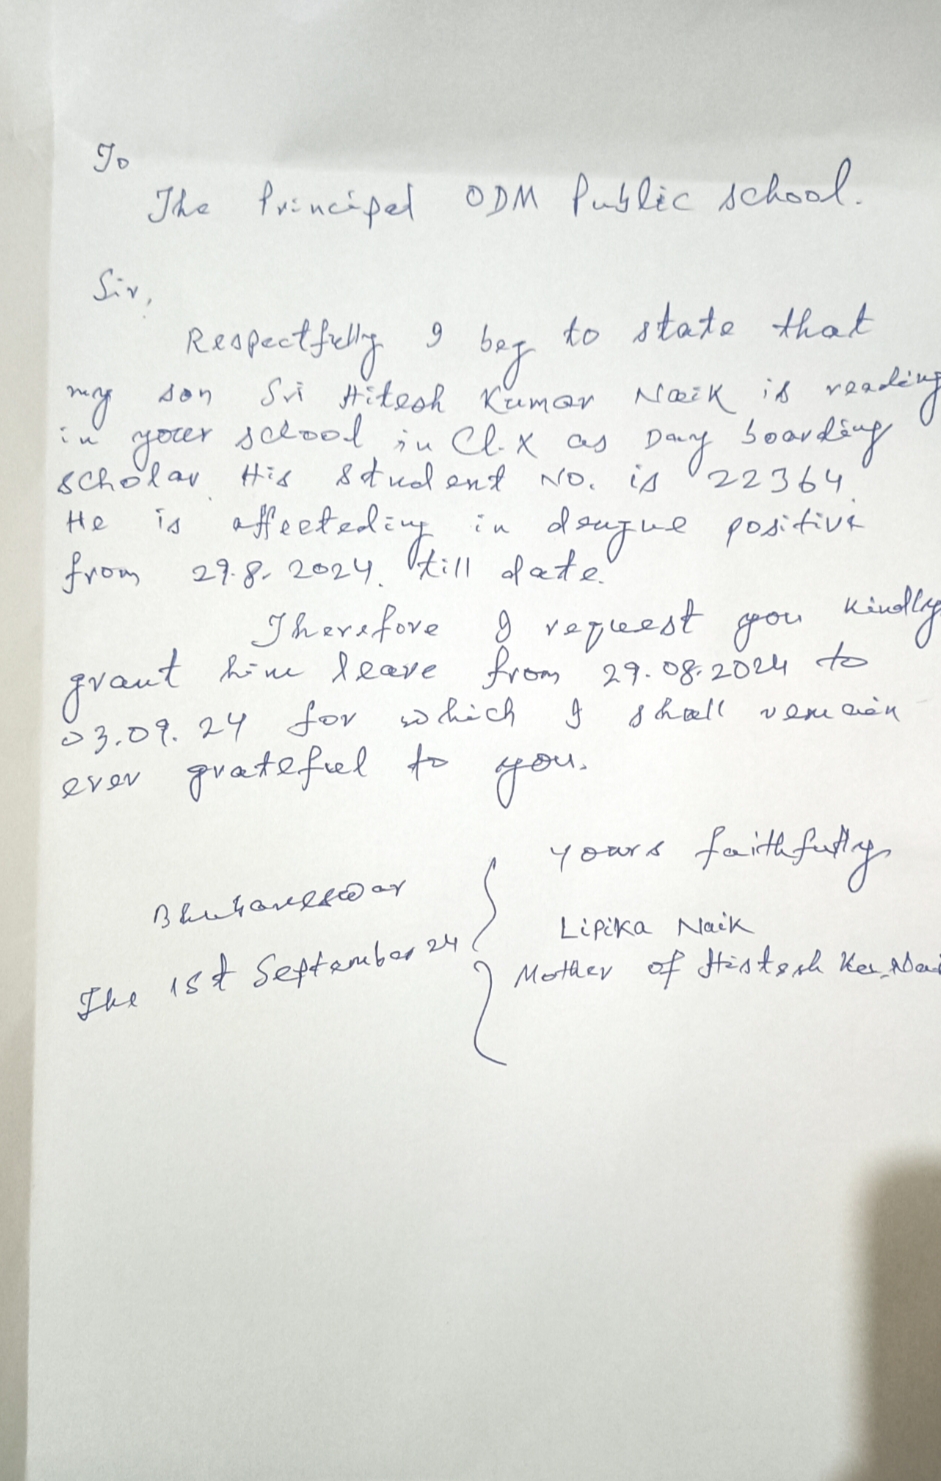 To
The Principal ODM Public school.
Sir,
Respectfully I beg to state that
my son Sri Hitesh Kumar Naik is reading
in your school in Cl. X as Day boarding
scholar. His Student No. is 22364.
He is affecteding in deugue positive
from 29.8.2024. till date.
Therefore I request you kindly
grant him leave from 29.08.2024 to
03.09.24 for which I shall remain
ever grateful to you.
Yours faithfully
Bhubaneswar
Lipika Naik
The 1st September 24
Mother of Histesh Ku. Nai